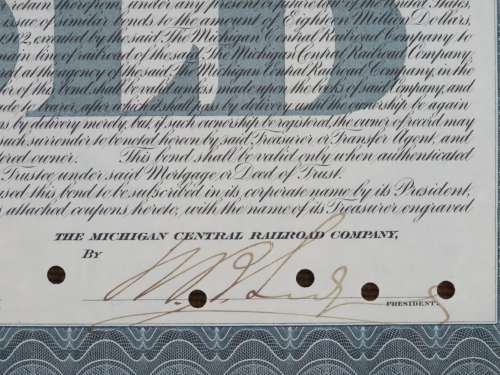 retain therefrom under any present
of similar bonds to the amount of Eighteen Million Dollars,
created by the said The Michigan Central Railroad Company to
line of railroad of the said The Michigan Central Railroad Company,
at the agency of the said The Michigan Central Railroad Company, in the
of this bond, shall be valid unless made upon the books of said company, and
ade to bearer, after which it shall pass by delivery until the ownership be again
s by delivery merely, but if such ownership be registered, the owner of record may
such surrender to be noted hereon by said Treasurer or Transfer Agent, and
ered owner. This bond shall be valid only when authenticated
Trustee under said Mortgage or Deed of Trust.
used this bond to be subscribed in its corporate name by its President,
attached coupons hereto, with the name of its Treasurer engraved
THE MICHIGAN CENTRAL RAILROAD COMPANY,
BY
PRESIDENT.